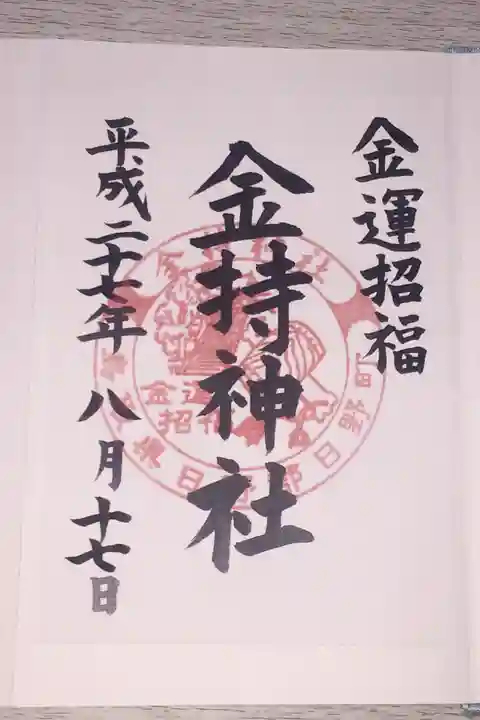 金運招福
金持神社
平成二十七年八月十七日
日野町